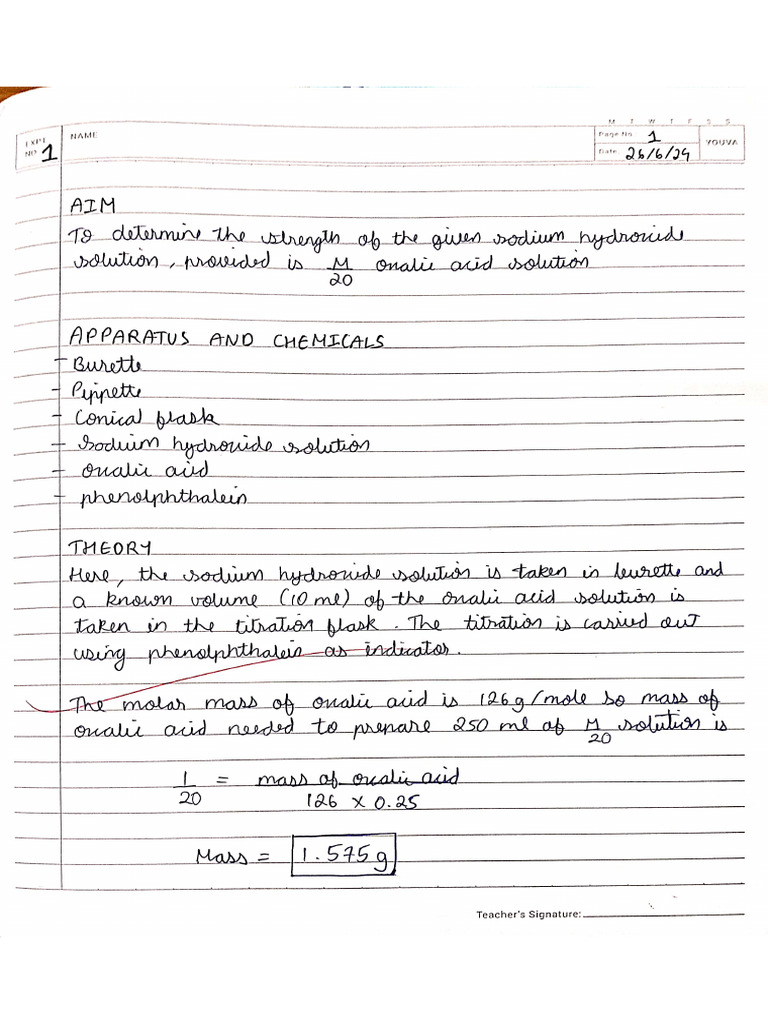 M T W T F S S
EXPT NO. 1
NAME
Page No. 1
Date: 26/6/24
YOUVA
AIM
To determine the strength of the given sodium hydroxide
solution, provided is M/20 oxalic acid solution
APPARATUS AND CHEMICALS
- Burette
- Pippette
- Conical flask
- Sodium hydroxide solution
- oxalic acid
- phenolphthalein
THEORY
Here, the sodium hydroxide solution is taken in burette and
a known volume (10 ml) of the oxalic acid solution is
taken in the titration flask. The titration is carried out
using phenolphthalein as indicator.
The molar mass of oxalic acid is 126g/mole so mass of
oxalic acid needed to prepare 250 ml of M/20 solution is
1/20 = mass of oxalic acid / 126 X 0.25
Mass = 1.575g
Teacher's Signature: